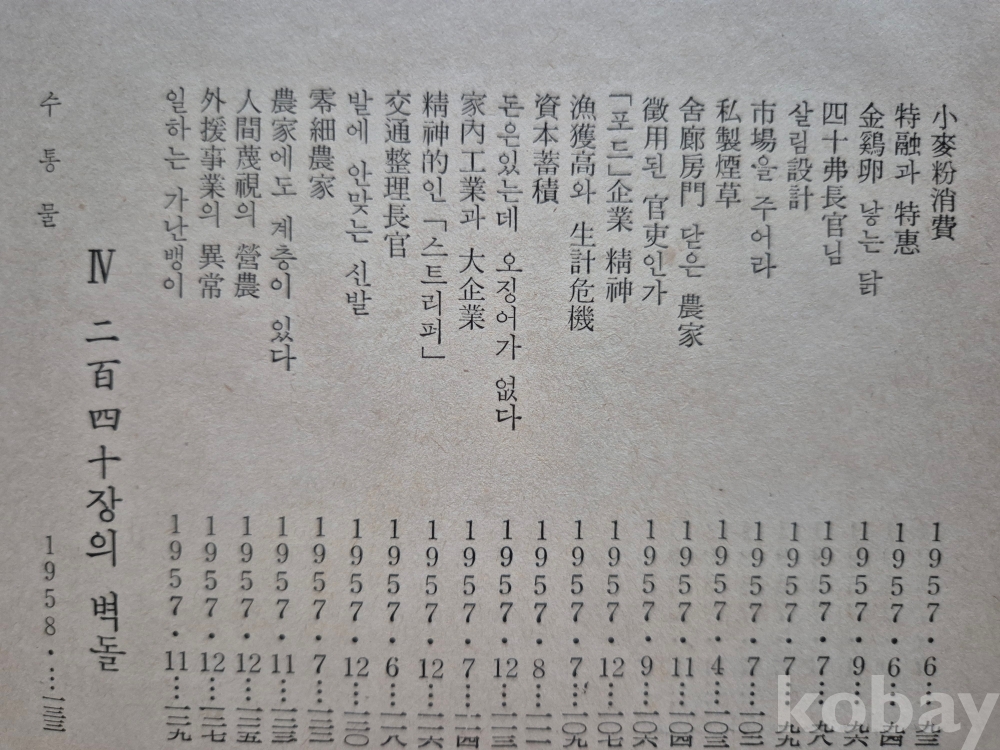 小麥粉消費 1957・6……九三
特融과 特惠 1957・6……九四
金鷄卵 낳는 닭 1957・9……九六
四十弗長官님 1957・7……九八
살림設計 1957・7……九九
市場을 주어라 1957・7……
私製煙草 1957・4……一〇三
舍廊房門 닫은 農家 1957・11……一〇四
徵用된 官吏인가 1957・9……一〇六
「포드」企業 精神 1957・12……一〇七
漁獲高와 生計危機 1957・7……一〇九
資本蓄積 1957・8……
돈은있는데 오징어가 없다 1957・12……一一三
家內工業과 大企業 1957・7……一一四
精神的인「스트리퍼」 1957・12……一一六
交通整理長官 1957・6……一一八
발에 안맞는 신발 1957・12……一二〇
零細農家 1957・7……
農家에도 계층이 있다 1957・11……一二三
人間蔑視의 營農 1957・12……一二五
外援事業의 異常 1957・12……一二七
일하는 가난뱅이 1957・11……一二九
Ⅳ 二百四十장의 벽돌
수통물 1958・……一三三
kobay